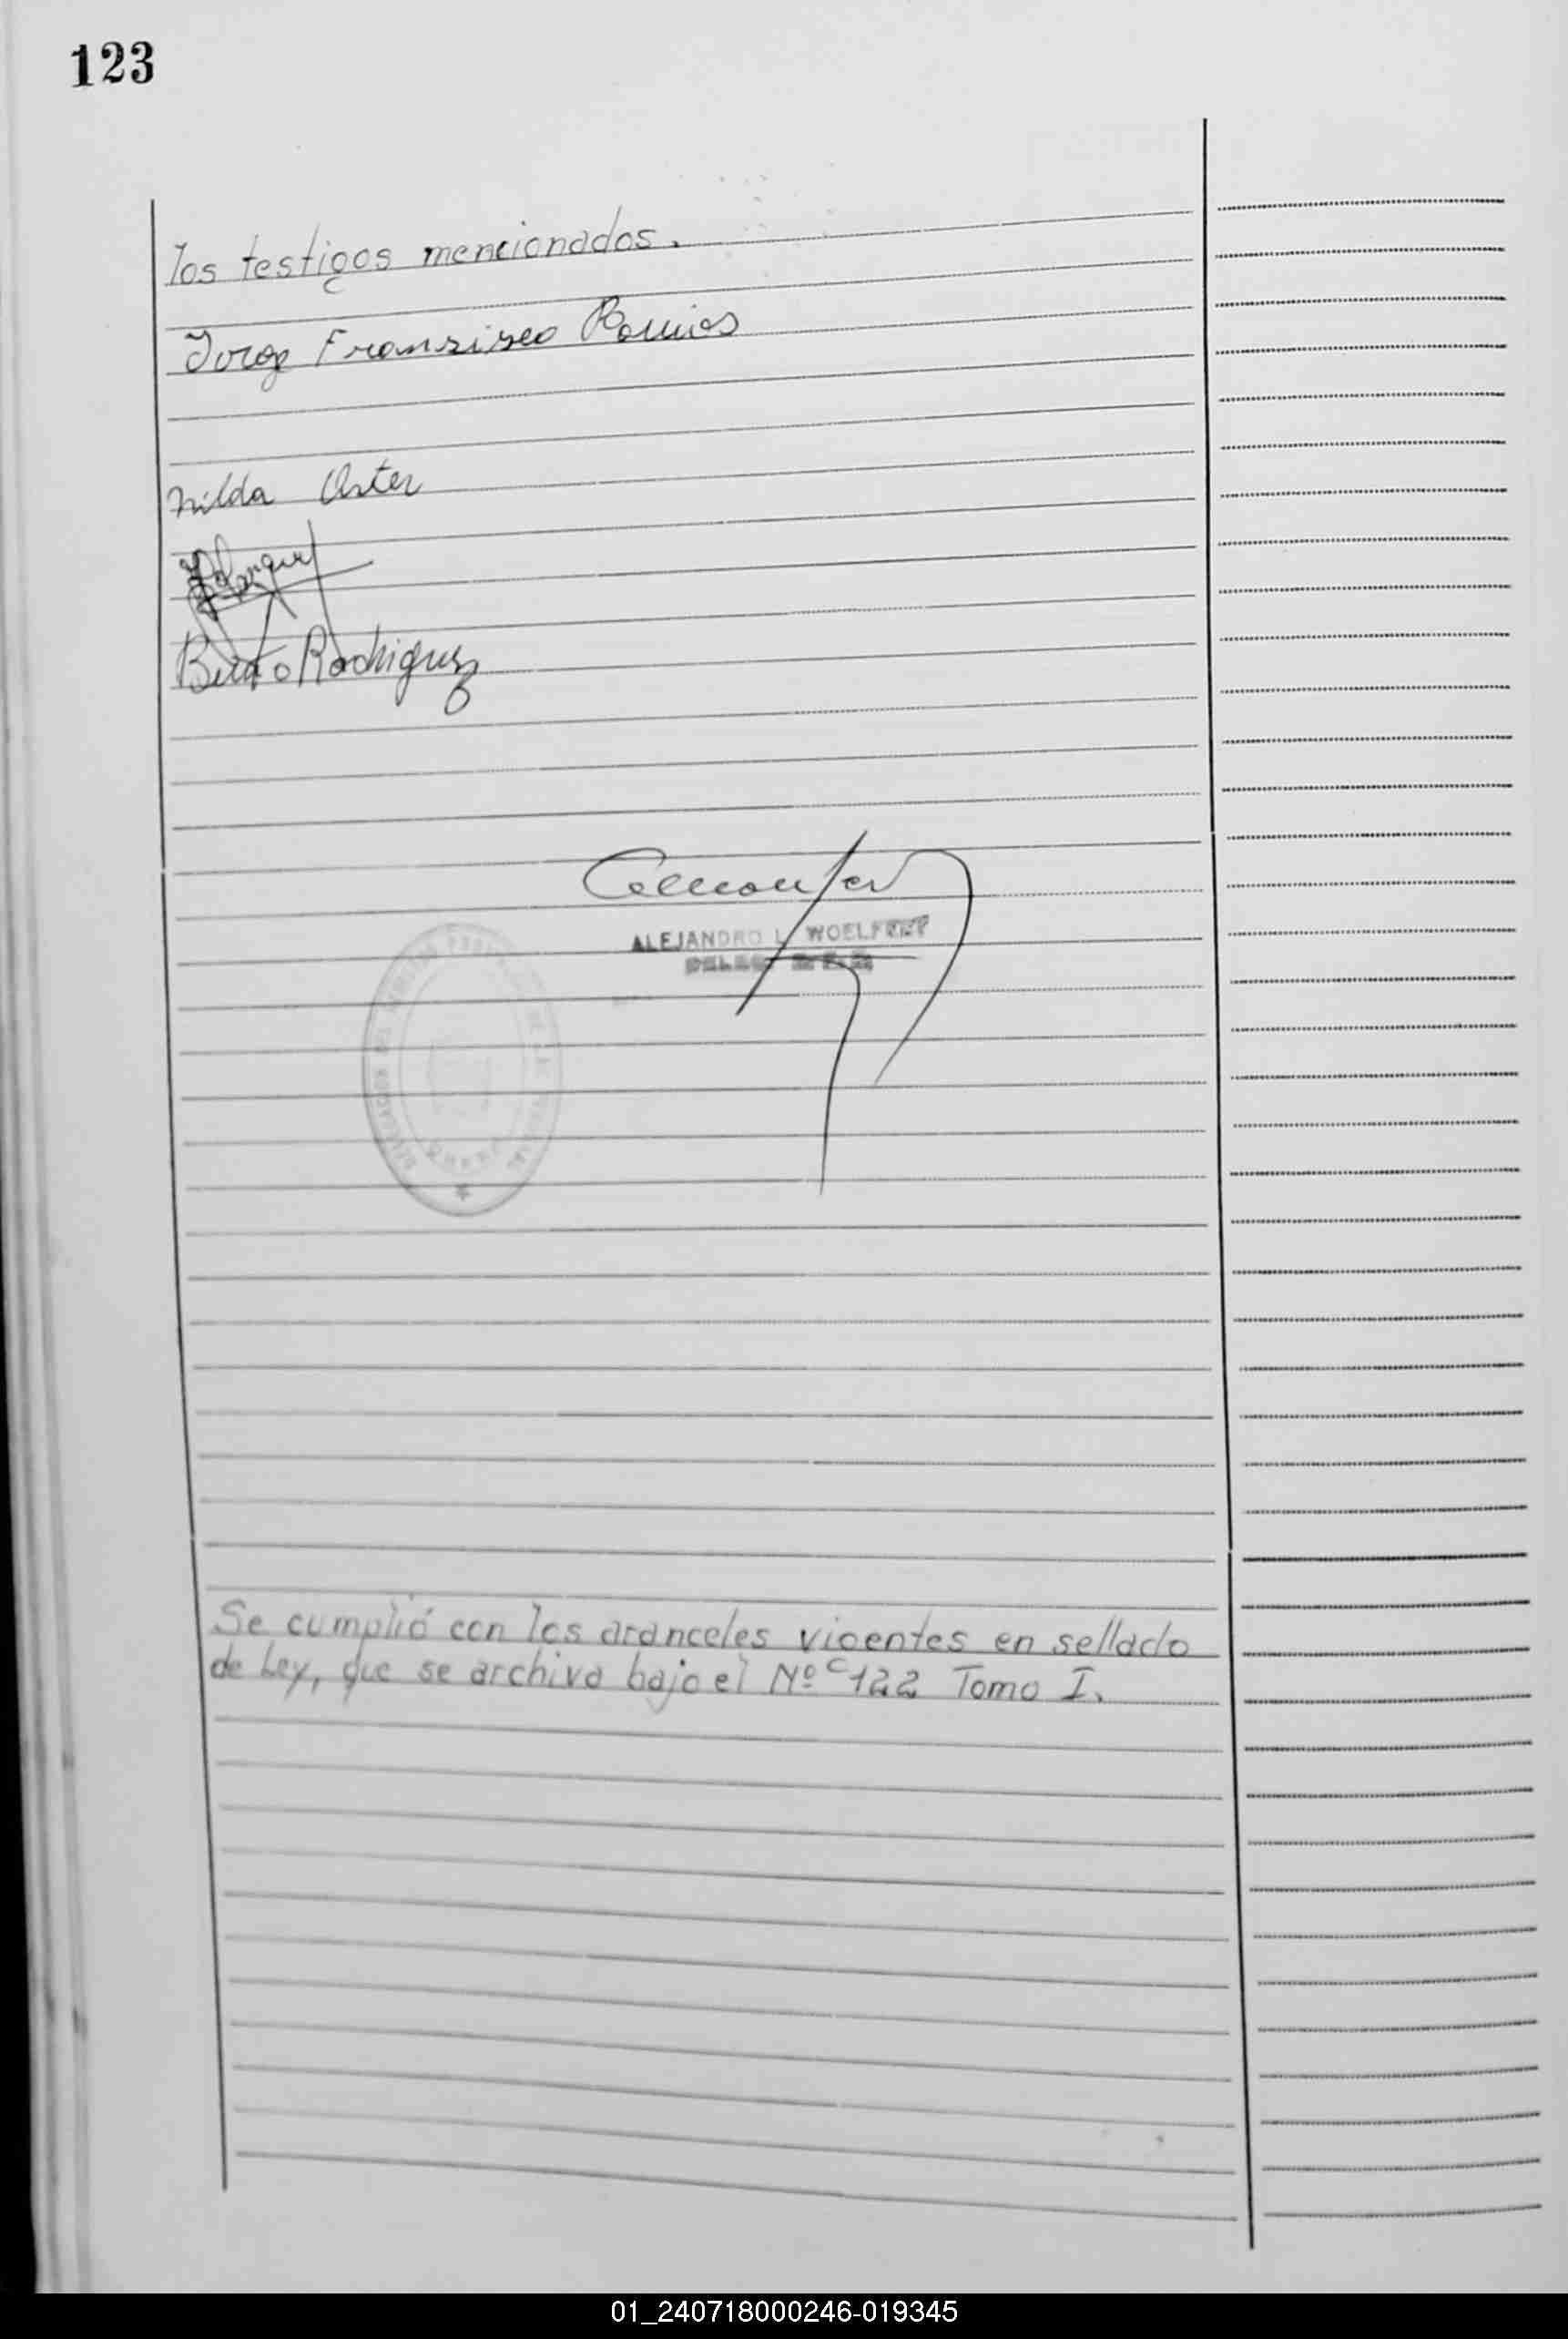 123
los testigos mencionados.
Jorge Fransisco Ramios
nilda Oster
Rodriguez
ALEJANDRO L. WOELFERT
Se cumplió con los aranceles vigentes en sellado
de Ley, que se archiva bajo el Nº C122 Tomo I.
01_240718000246-019345